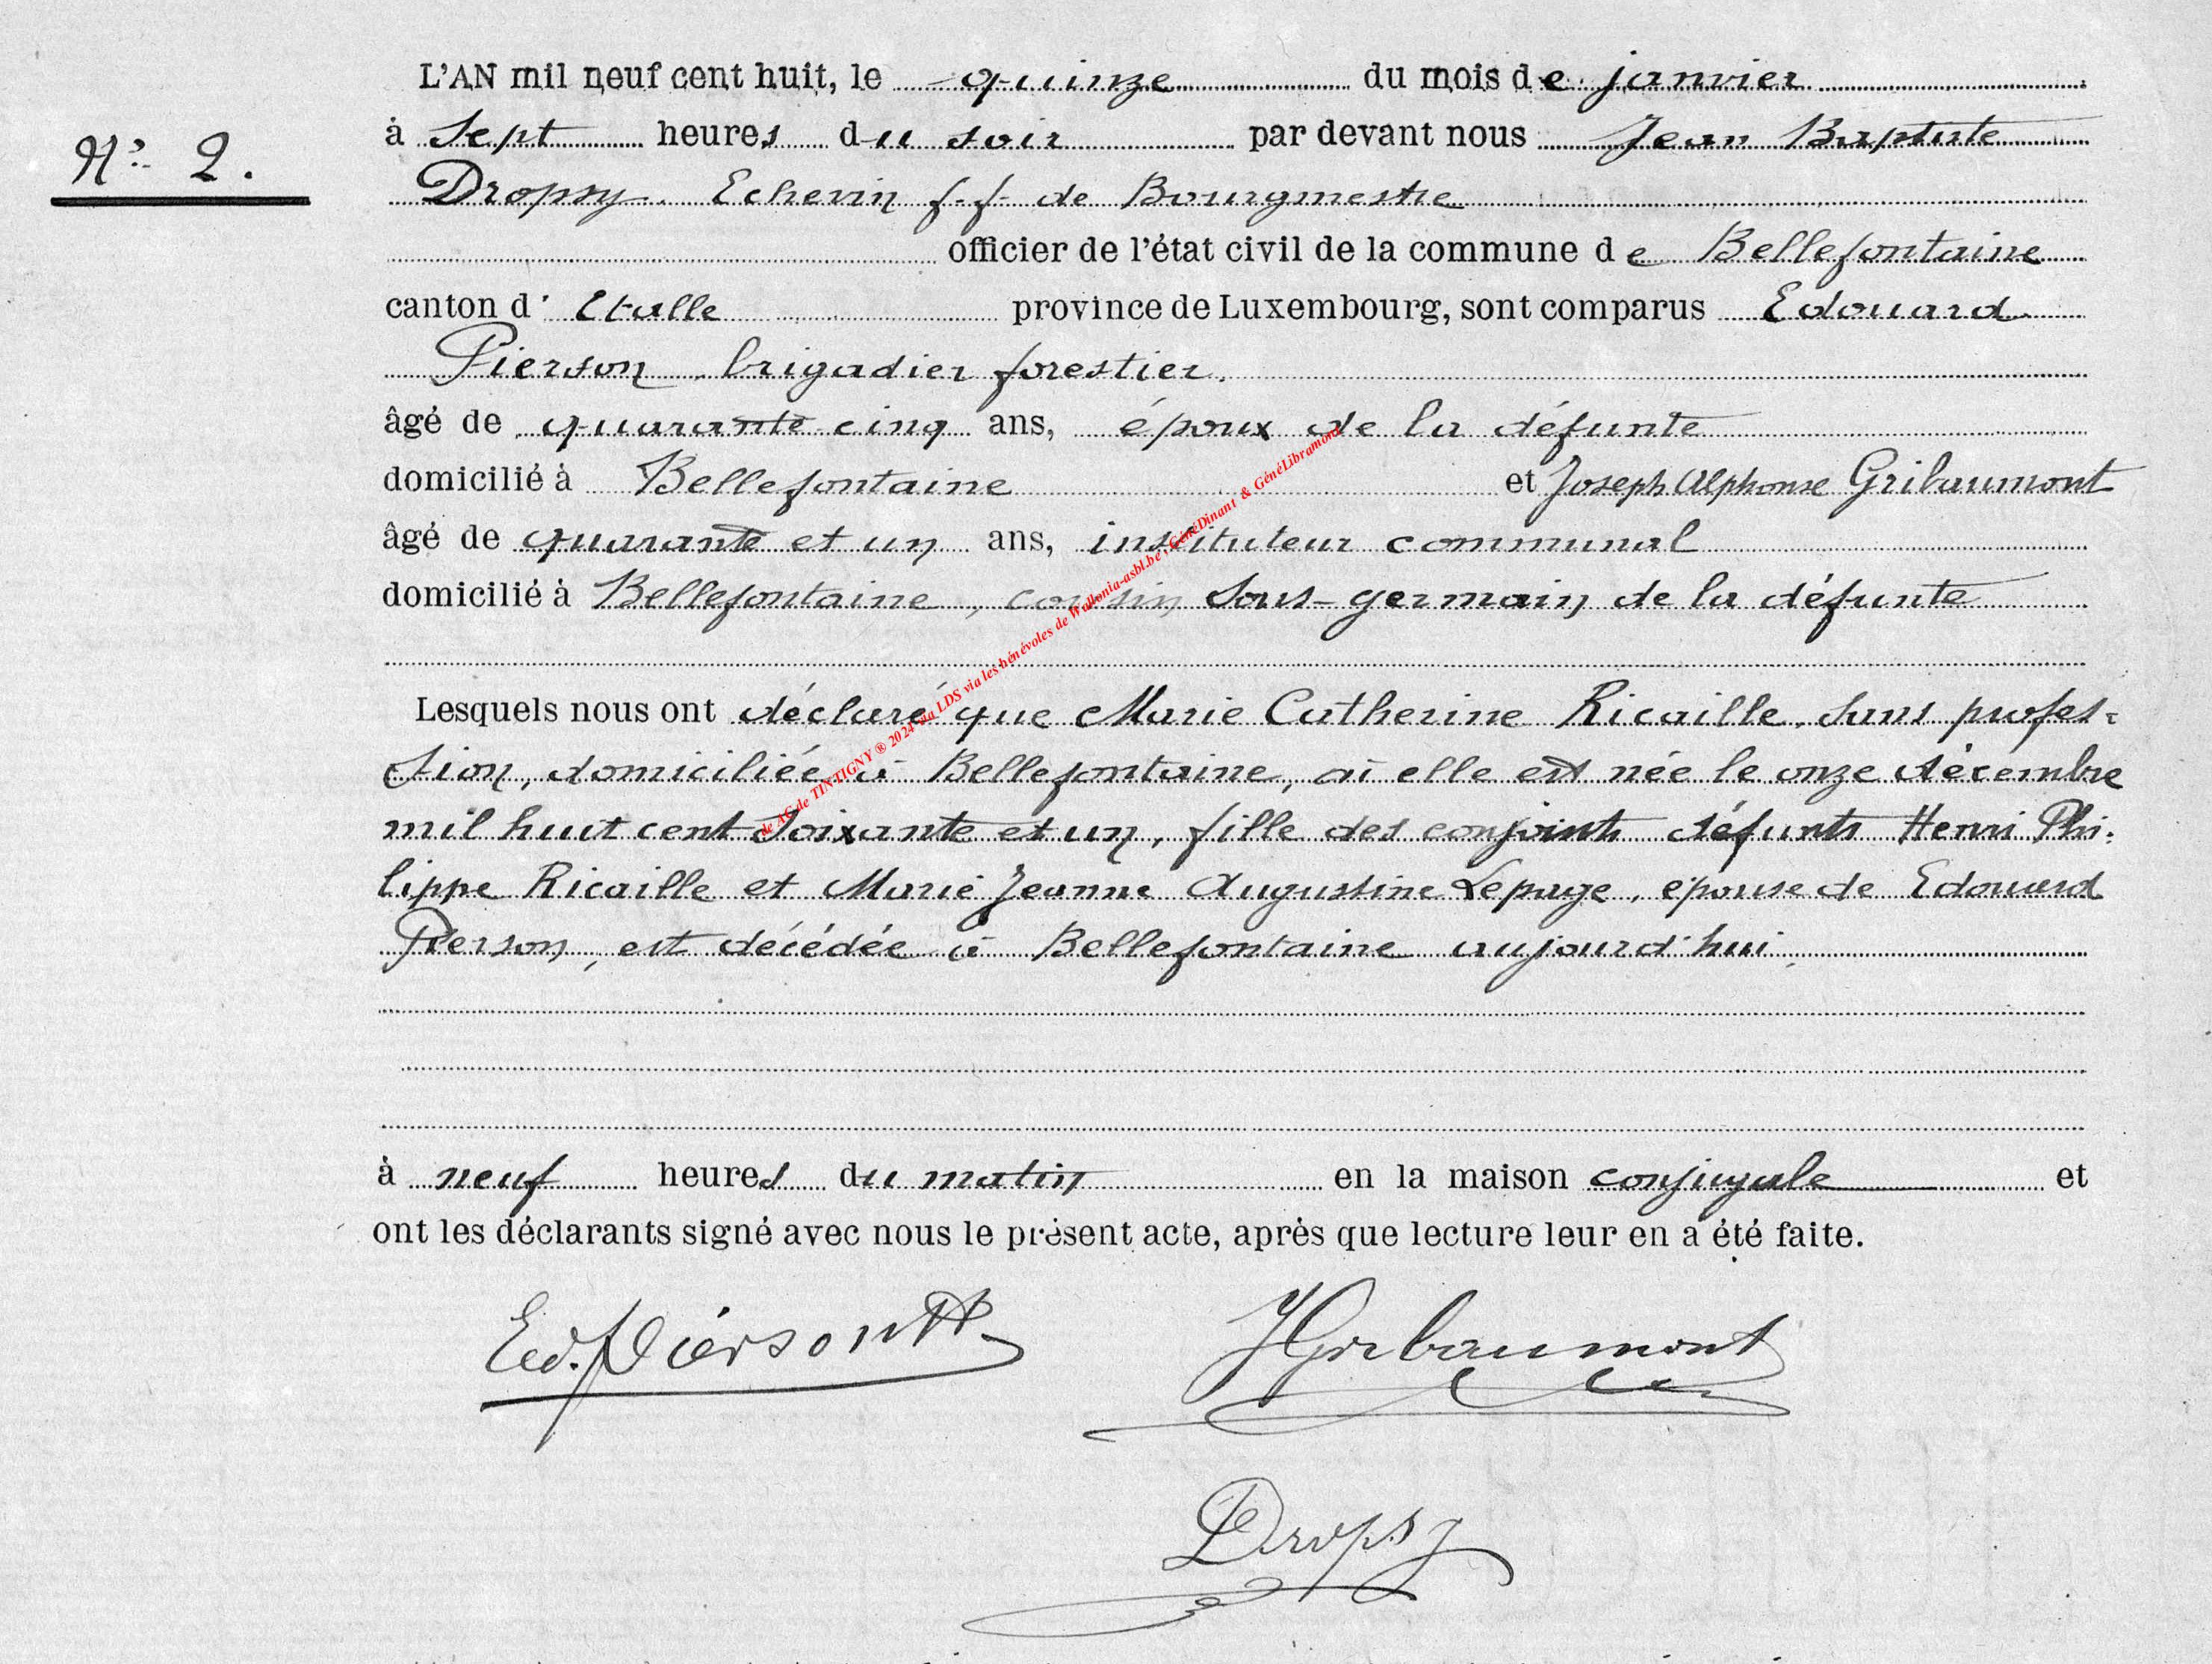 L'AN mil neuf cent huit, le quinze du mois de janvier
N° 2.
à Sept heures du soir par devant nous Jean Baptiste
Dropsy. Echevin f.f. de Bourgmestre
officier de l'état civil de la commune de Bellefontaine
canton d' Etalle province de Luxembourg, sont comparus Edouard
Pierson, brigadier forestier.
âgé de quarante cinq ans, époux de la défunte
domicilié à Bellefontaine et Joseph Alphonse Gribaumont
âgé de quarante et un ans, instituteur communal
domicilié à Bellefontaine, cousin sous-germain de la défunte
Lesquels nous ont déclaré que Marie Catherine Ricaille, sans profes-
sion, domiciliée à Bellefontaine, où elle est née le onze décembre
mil huit cent soixante et un, fille des conjoints défunts Henri Phi-
lippe Ricaille et Marie Jeanne Augustine Lepage, épouse de Edouard
Pierson, est décédée à Bellefontaine aujourd'hui
à neuf heures du matin en la maison conjugale et
ont les déclarants signé avec nous le présent acte, après que lecture leur en a été faite.
Ed. Pierson
JGribaumont
Dropsy
de AC de TINTIGNY ® 2024 via LDS via les bénévoles de Wallonia-asbl.be, GénéDinant & GénéLibramont